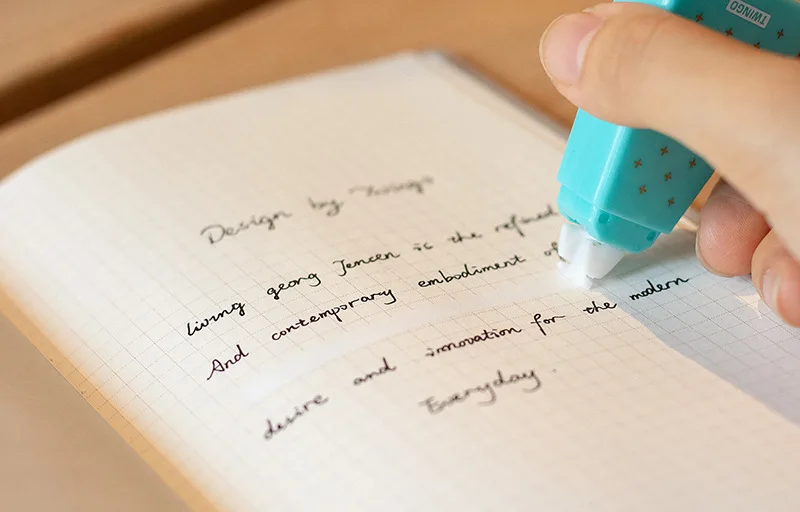 TWINGO
Design by Twingo
living georg Jencen is the refined
And contemporary embodiment of
desire and innovation for the modern
Everyday.